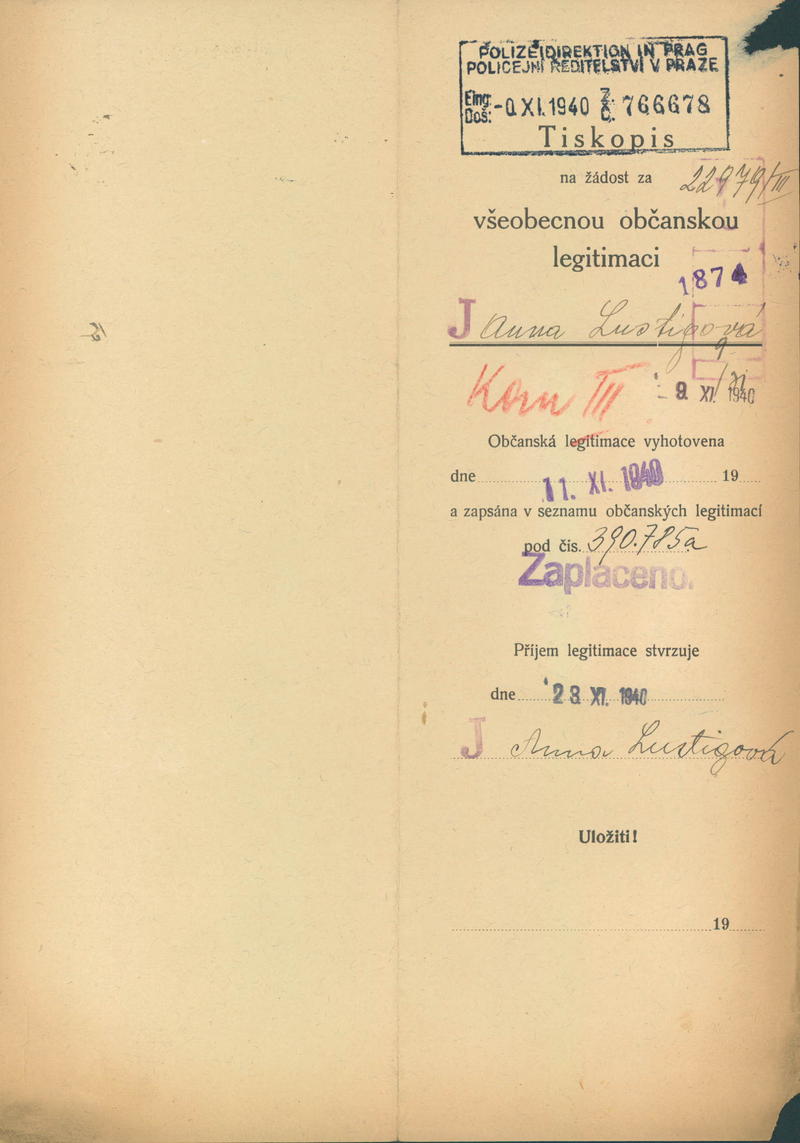 POLIZEIDIREKTION IN PRAG
POLICEJNÍ ŘEDITELSTVÍ V PRAZE
Eing.
Doš: -9.XI.1940 Z. Č. 766678
Tiskopis
na žádost za 22979/III
všeobecnou občanskou
legitimaci
1874
J Anna Lustigová
Kom III 9 XI. 1940
Občanská legitimace vyhotovena
dne 11. XI. 1940 19
a zapsána v seznamu občanských legitimací
pod čís. 390.785a
Zaplaceno.
Příjem legitimace stvrzuje
dne 23 XI. 1940
J Anna Lustigová
Uložiti!
19